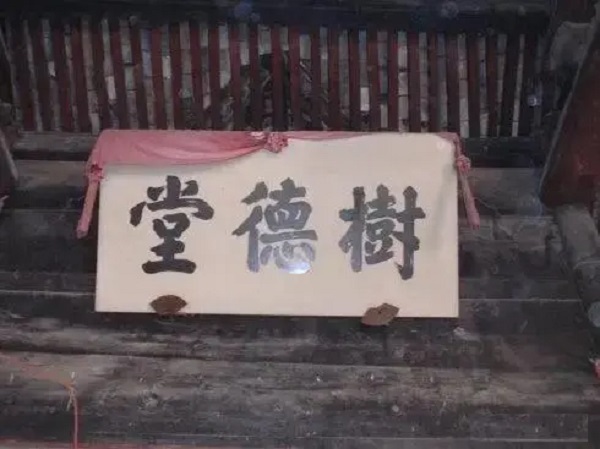 樹德堂